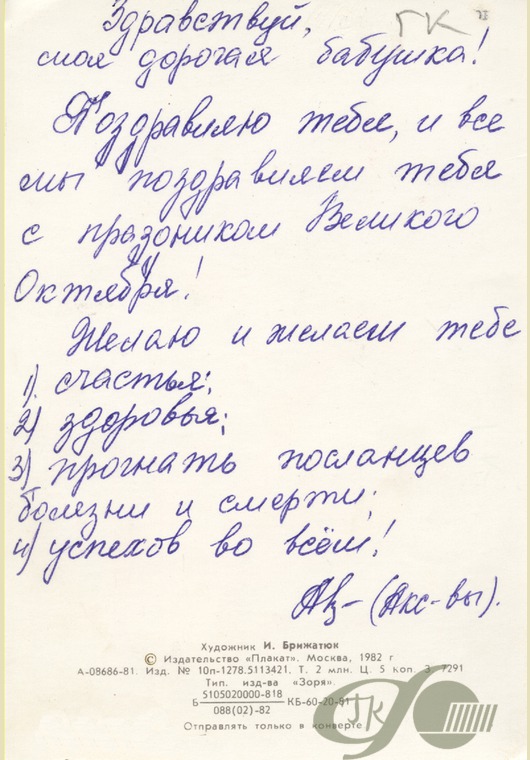 Здравствуй,
ГК
моя дорогая бабушка!
Поздравляю тебя, и все
мы поздравляем тебя
с праздником Великого
Октября!
Желаю и желаем тебе
1) счастья;
2) здоровья;
3) прогнать посланцев
болезни и смерти;
4) успехов во всём!
(Акс-вы).
Художник И. Брижатюк
© Издательство «Плакат». Москва, 1982 г
А-08686-81. Изд. № 10п-1278.5113421. Т. 2 млн. Ц. 5 коп. З. 7291
Тип. изд-ва «Зоря».
5105020000-818
Б КБ-60-20-81
088(02)-82
Отправлять только в конверте
ГК